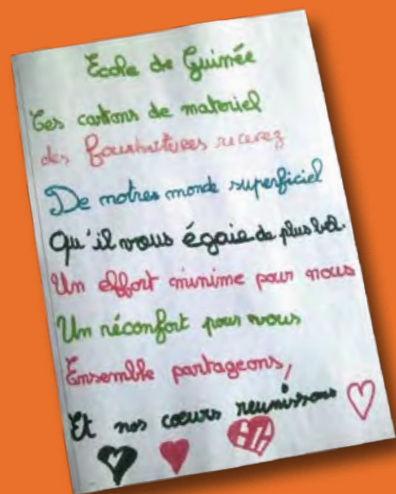 École de Guinée
Ces cartons de materiel
des fournitures recevez
De notres monde superficiel
Qu'il vous égaie de plus bel.
Un effort minime pour nous
Un réconfort pour vous
Ensemble partageons,
Et nos cœurs reunissons